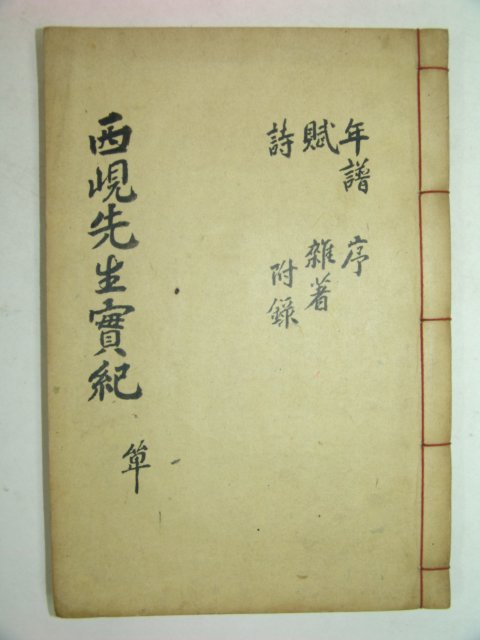 年譜 序
賦 雜著
詩 附錄
西峴先生實紀 單